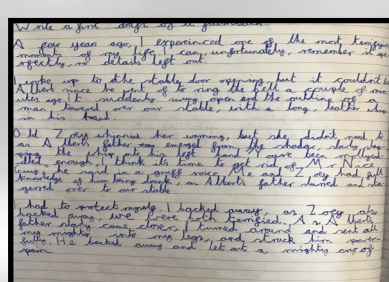 Write a first draft of a
A few years ago, I experienced one of the most terrifying
moments of my life. I can, unfortunately, remember it
perfectly, no details left out.
I woke up to the stable door opening, but it couldn't be
Albert since he went of to ring the bell a couple of
utes ago. It suddenly swung open and the outline of a
man towered over our stable, with a long leather whip
in his hand.
Old Zoey whinnied her warning, but she didn't need
as Alberts father emerged from the shadows,
the whip at his left and
enough. I think it's time to get rid of Mr Nice
Guy," he said in a gruff voice. Me and Zoey had full
knowledge of him being drunk as Alberts father and
gered over to our stable.
I had to protect myself. I backed away, as Zoey also
backed away, we were both terrified. As Alberts
father came closer, I turned around and sent all
my might into my legs, and struck him
fully. He backed away and let out a mighty cry of
pain.